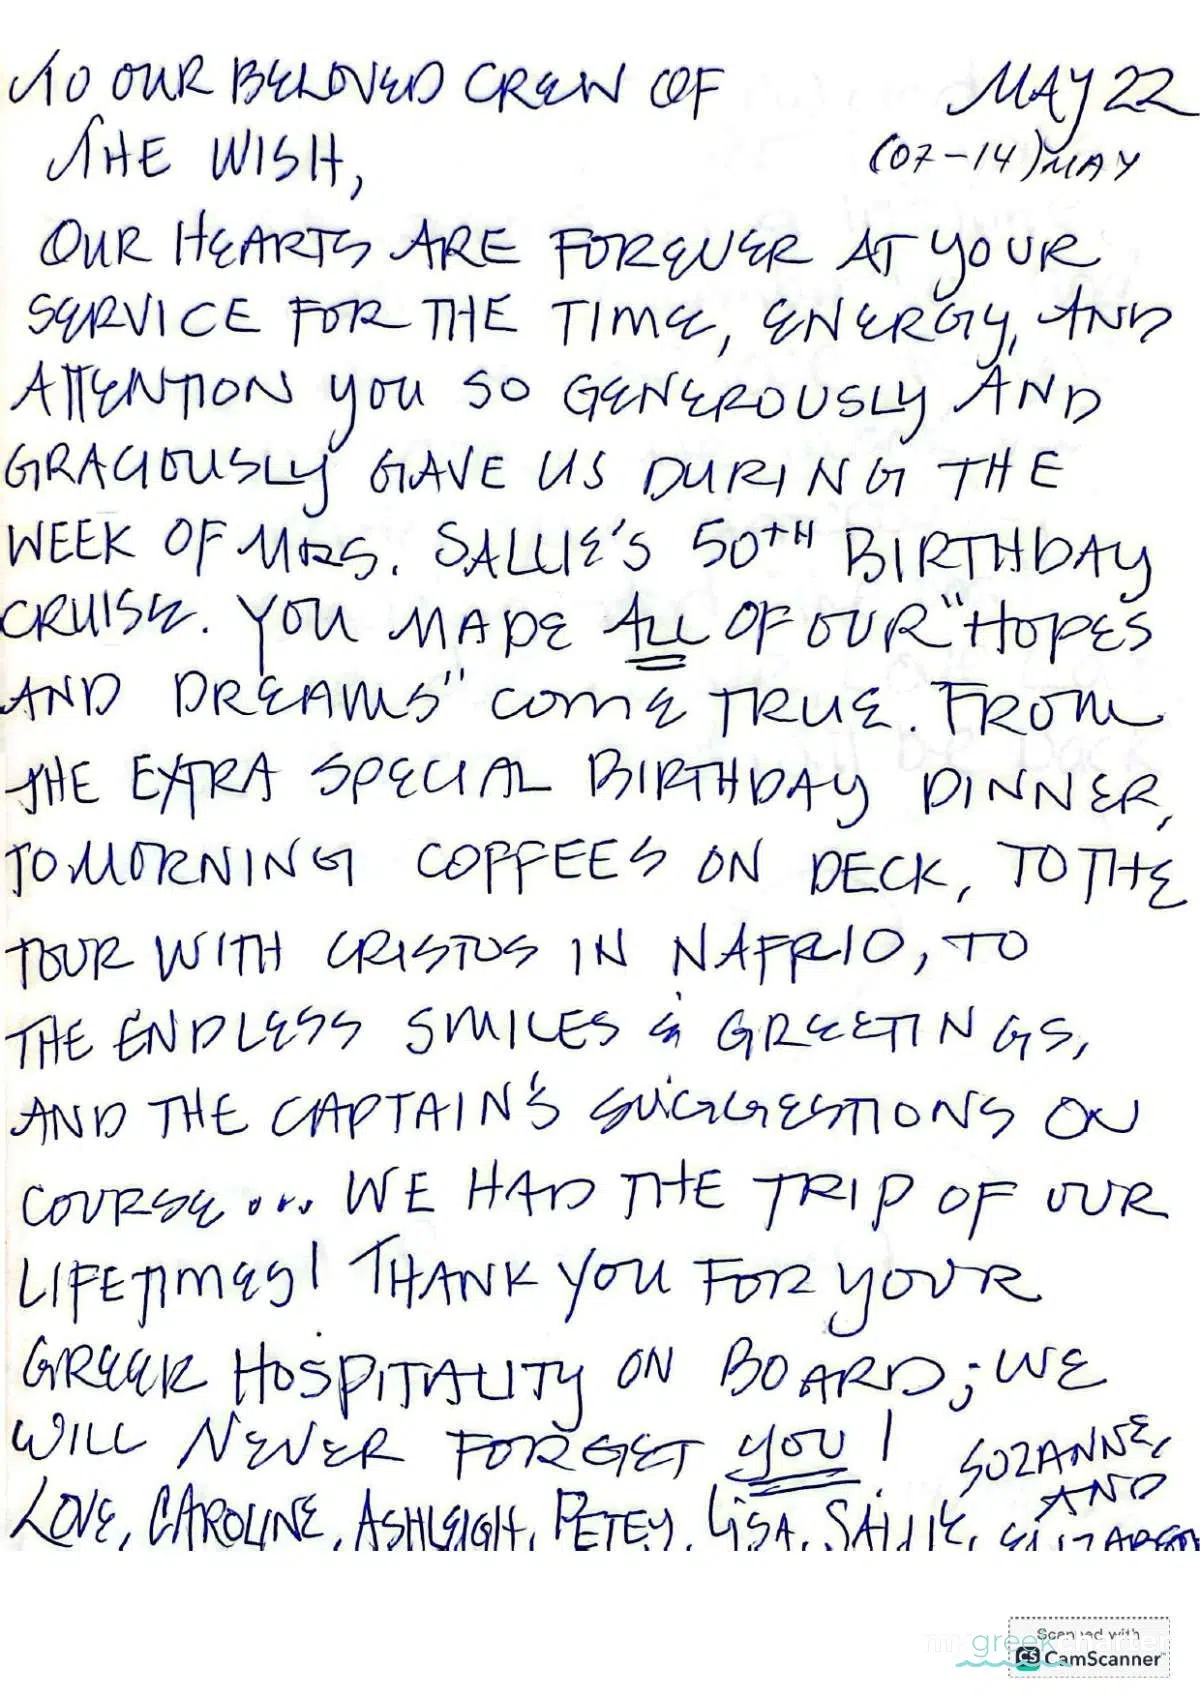 TO OUR BELOVED CREW OF MAY 22
THE WISH, (07-14) MAY
OUR HEARTS ARE FOREVER AT YOUR
SERVICE FOR THE TIME, ENERGY, AND
ATTENTION YOU SO GENEROUSLY AND
GRACIOUSLY GAVE US DURING THE
WEEK OF MRS. SALLIE'S 50TH BIRTHDAY
CRUISE. YOU MADE ALL OF OUR "HOPES
AND DREAMS" COME TRUE. FROM
THE EXTRA SPECIAL BIRTHDAY DINNER,
TO MORNING COFFEES ON DECK, TO THE
TOUR WITH CRISTOS IN NAFRIO, TO
THE ENDLESS SMILES & GREETINGS,
AND THE CAPTAIN'S SUGGESTIONS ON
COURSE... WE HAD THE TRIP OF OUR
LIFETIMES! THANK YOU FOR YOUR
GREEK HOSPITALITY ON BOARD; WE
WILL NEVER FORGET YOU!
LOVE, CAROLINE, ASHLEIGH, PETEY, LISA, SALLIE, SUZANNE,
AND
ELIZABETH
Scanned with
CS CamScanner
my greek charter